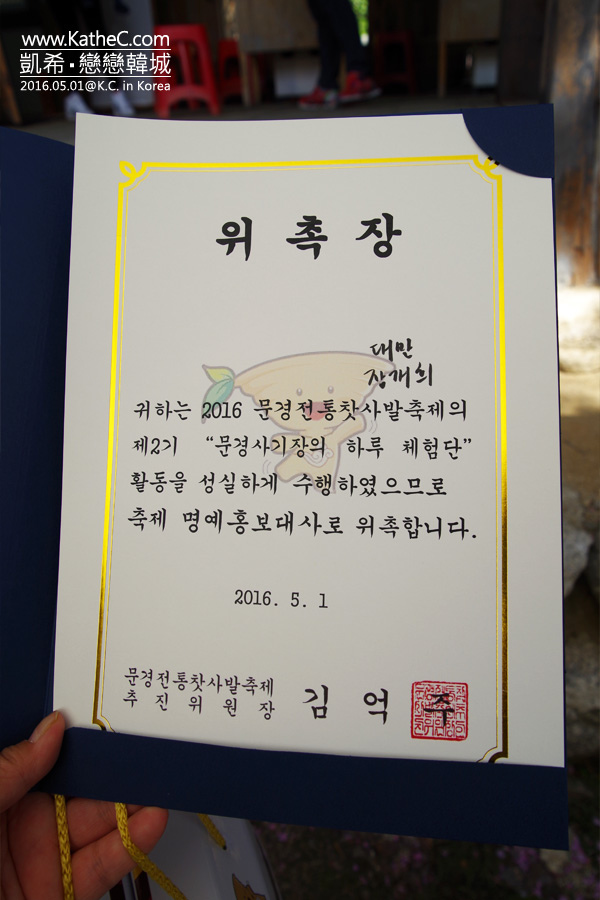 www.KatheC.com
凱希•戀戀韓城
2016.05.01@K.C. in Korea
위촉장
대만
장개희
귀하는 2016 문경전통찻사발축제의
제2기 “문경사기장의 하루 체험단”
활동을 성실하게 수행하였으므로
축제 명예홍보대사로 위촉합니다.
2016. 5. 1
문경전통찻사발축제
추진위원장 김억주